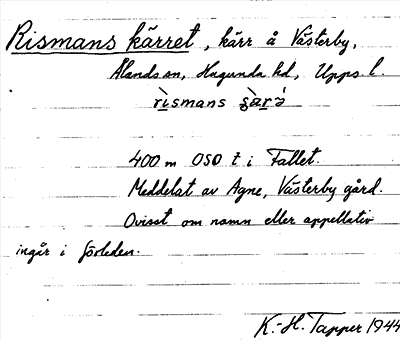 Rismans kärret, kärr å Västerby,
Ålands sn, Hagunda hd, Upps. l.
rìsmans
400 m OSO t i Fallet.
Meddelat av Agne, Västerby gård.
Ovisst om namn eller appellativ
ingår i förleden.
K.-H. Tapper 1944